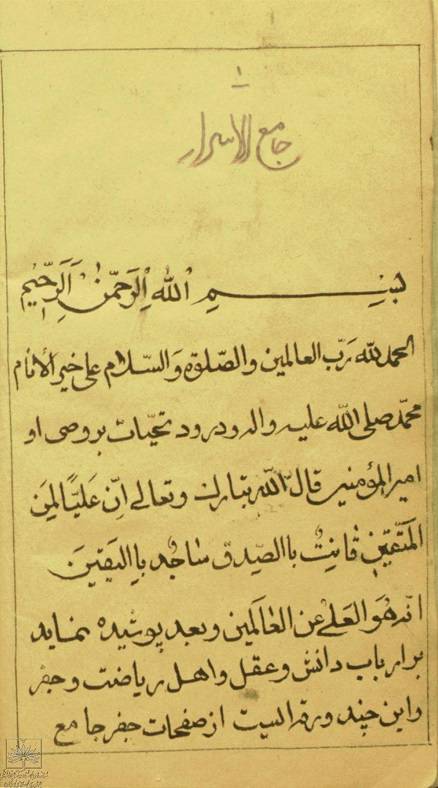 ١
جامع الاسرار
بسم الله الرحمن الرحيم
الحمد لله رب العالمين والصلوة والسلام على خير الانام
محمد صلى الله عليه واله ودرود تحيات بر وصى او
امير المؤمنين قال الله تبارك وتعالى اِنّ عَليًّا لَمِنَ
المتقين قانِتٌ باالصِدق ساجد بِااليَقينَ
انّه هُوَ العَلى عن الظالمين وبعد پوشيده نمايد
بر ارباب دانش وعقل واهل رياضت وجفر
واين چند ورق است از صفحات جفر جامع